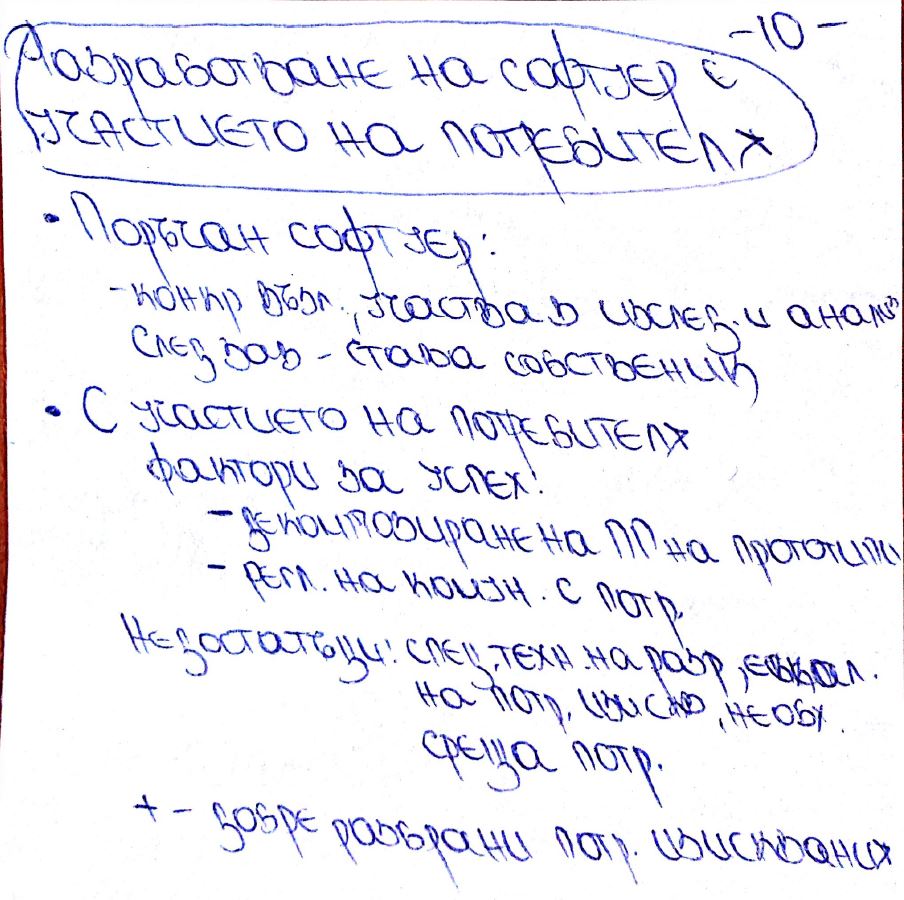 -10-
Разработване на софтуер с
участието на потребителя
• Поръчан софтуер:
- конкр възл., участва в изслед. и анализ
след зав - става собственик
• С участието на потребителя
фактори за успех:
- декомпозиране на ПП на прототипи
- регл. на комун. с потр.
Недостатъци: спец. техн. на разр,
на потр. изиск, необх.
среща потр.
+ - добре разбрани потр. изисквания